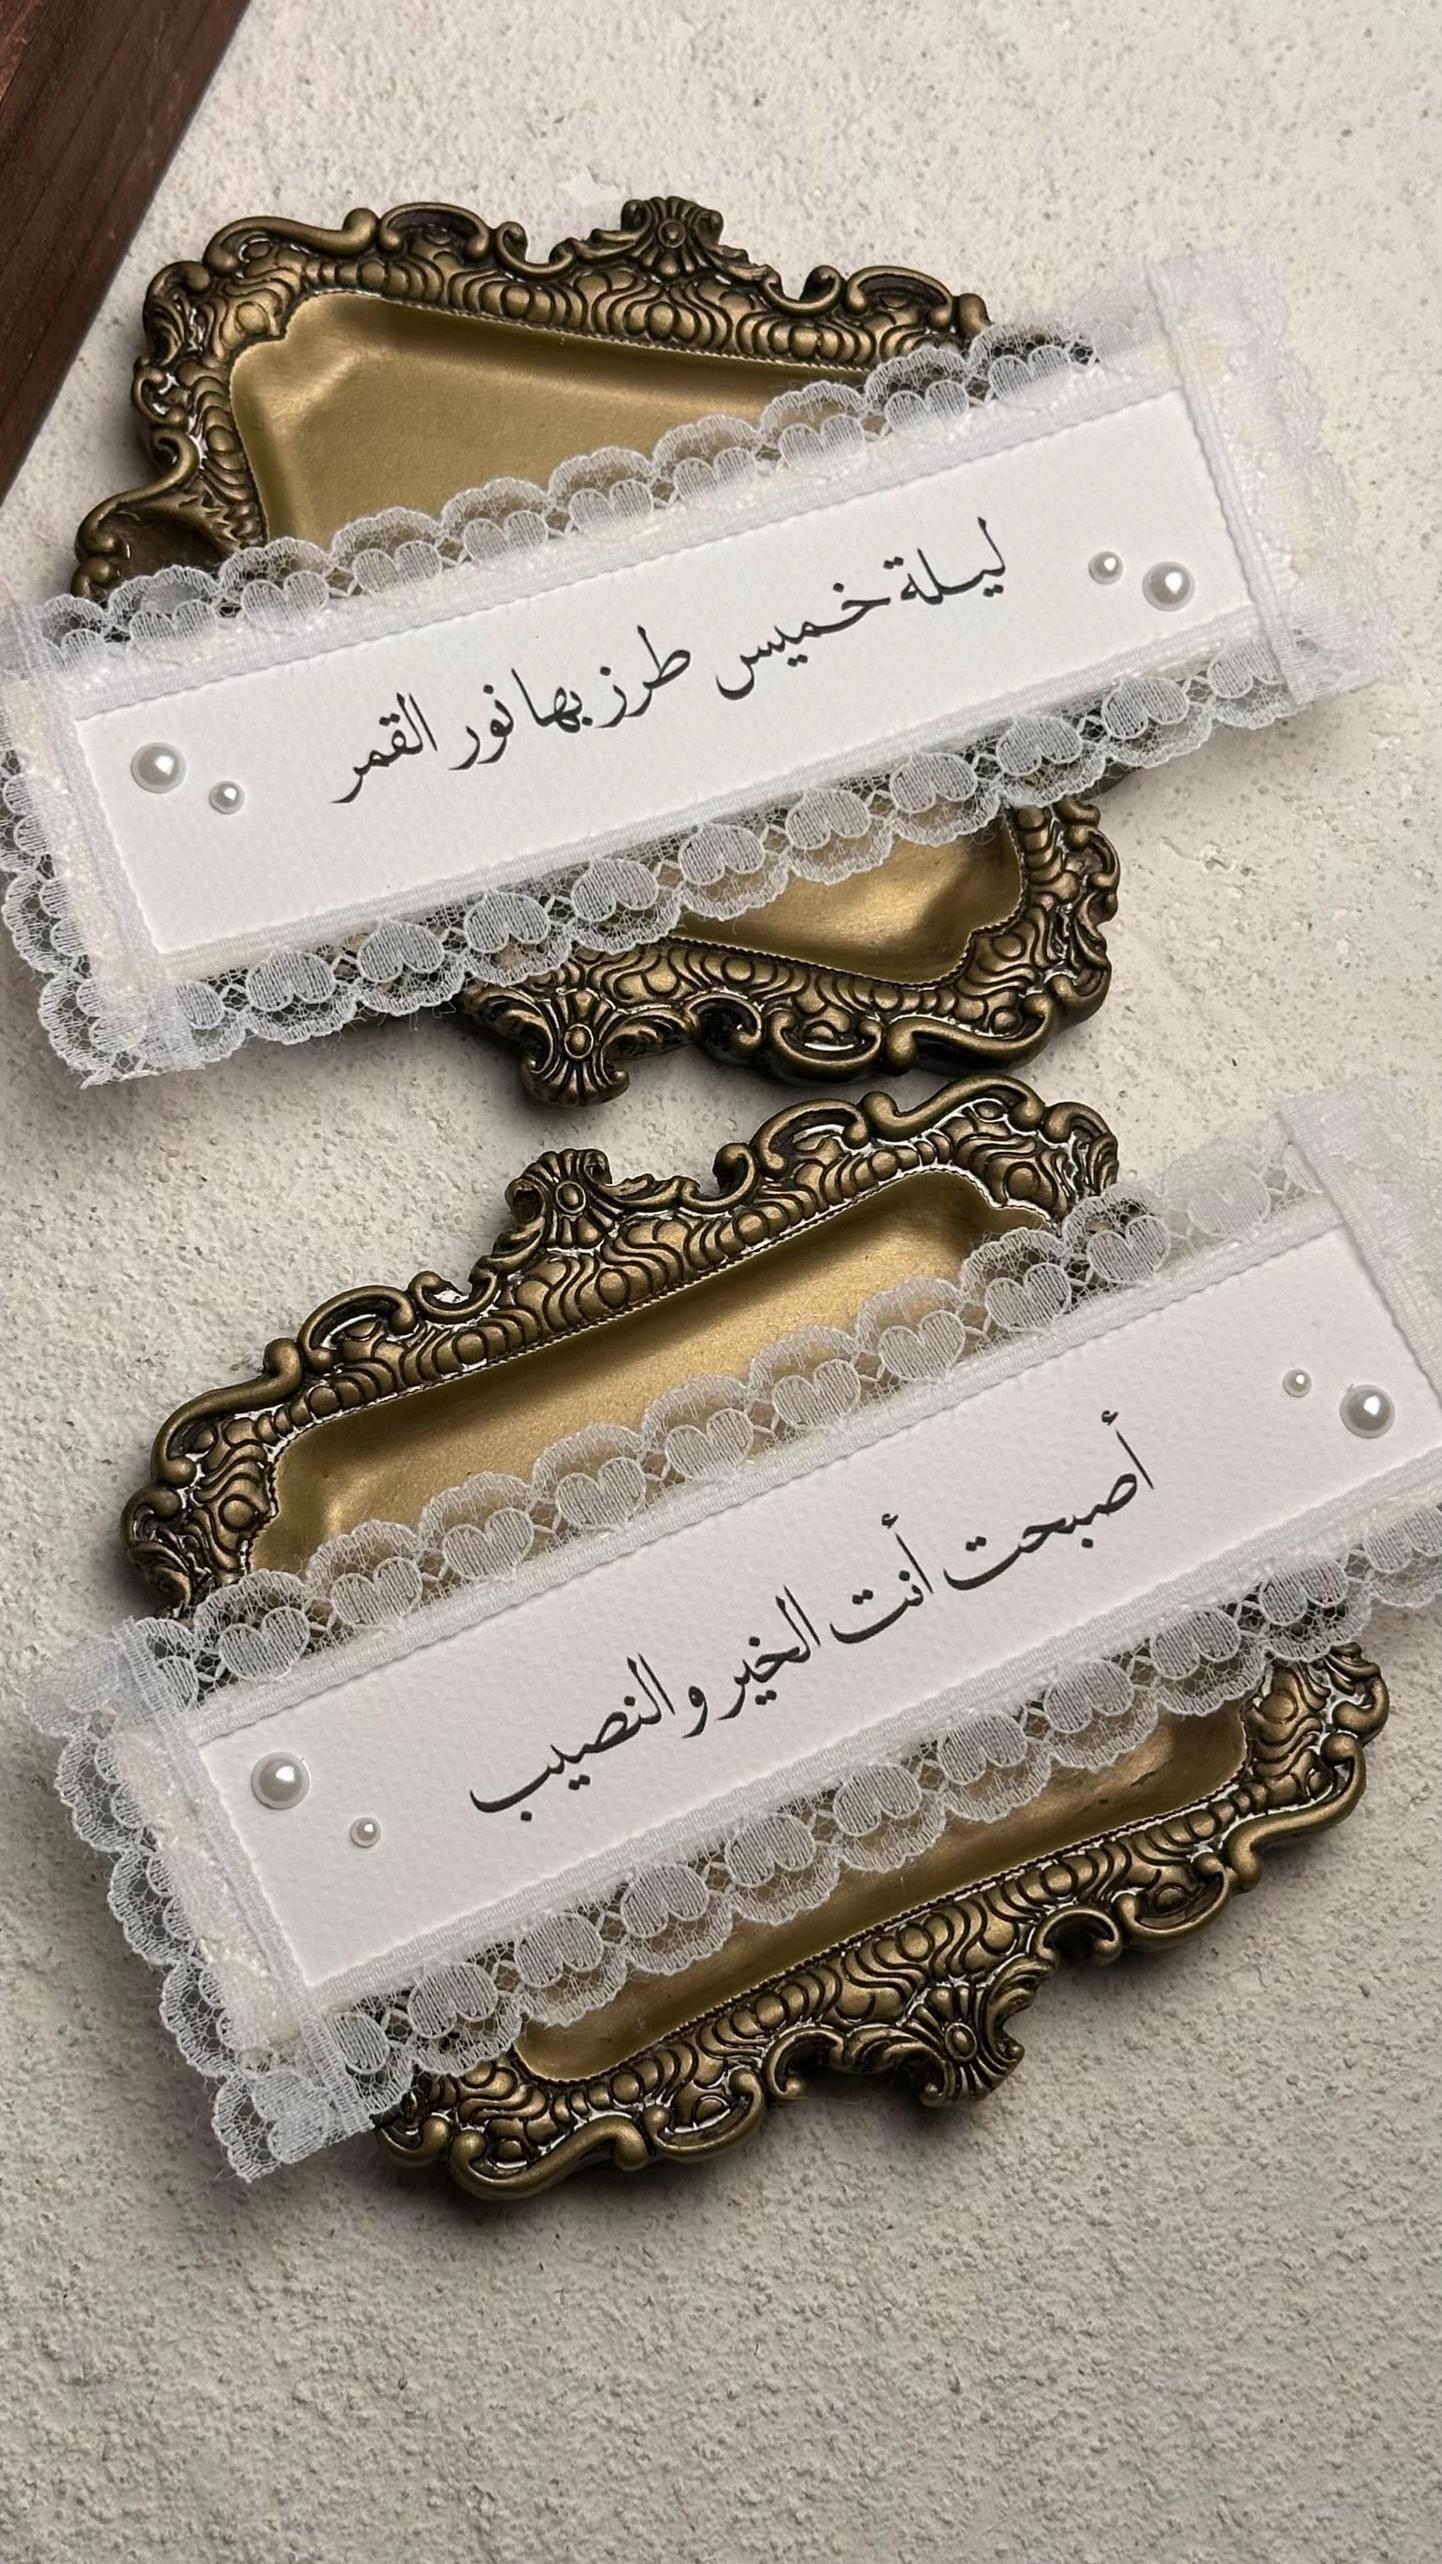 ليلة خميس طرز بها نور القمر
أصبحت أنت الخير و النصيب